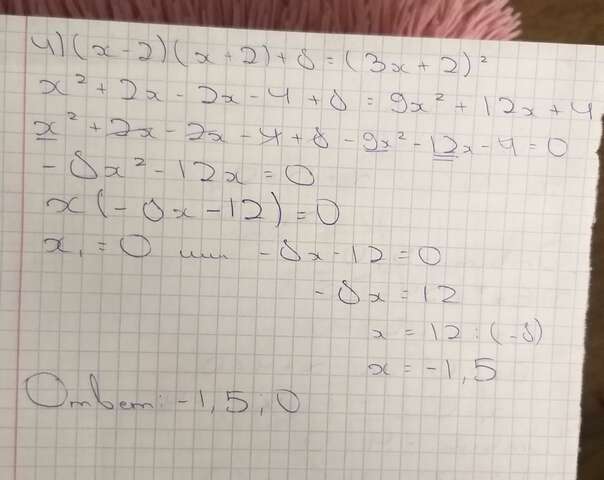 4) (x-2)(x+2)+8=(3x+2)²
x²+2x-2x-4+8=9x²+12x+4
x²+2x-2x-4+8-9x²-12x-4=0
-8x²-12x=0
x(-8x-12)=0
x₁=0 или -8x-12=0
-8x=12
x=12:(-8)
x=-1,5
Ответ: -1,5; 0